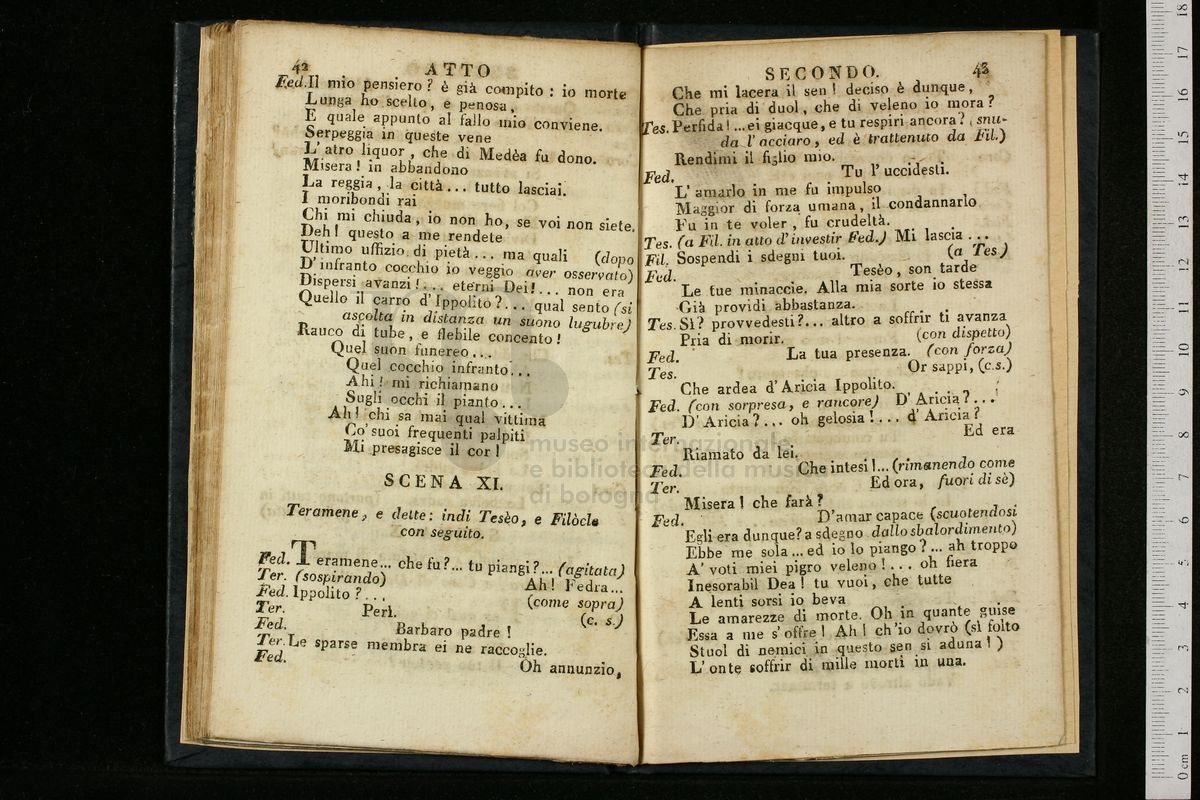 42
ATTO
Fed. Il mio pensiero? è già compito: io morte
Lunga ho scelto, e penosa,
E quale appunto al fallo mio conviene.
Serpeggia in queste vene
L'atro liquor, che di Medèa fu dono.
Misera! in abbandono
La reggia, la città... tutto lasciai.
I moribondi rai
Chi mi chiuda, io non ho, se voi non siete.
Deh! questo a me rendete
Ultimo uffizio di pietà... ma quali (dopo
D'infranto cocchio io veggio aver osservato)
Dispersi avanzi!... eterni Dei!... non era
Quello il carro d'Ippolito?... qual sento (si
ascolta in distanza un suono lugubre)
Rauco di tube, e flebile concento!
Quel suon funereo...
Quel cocchio infranto...
Ahi! mi richiamano
Sugli occhi il pianto...
Ah! chi sa mai qual vittima
Co'suoi frequenti palpiti
Mi presagisce il cor!
SCENA XI.
Teramene, e dette: indi Tesèo, e Filòcle
con seguito.
Fed. Teramene... che fu?... tu piangi?... (agitata)
Ter. (sospirando) Ah! Fedra...
Fed. Ippolito?... (come sopra)
Ter. Perì.
Fed. Barbaro padre! (c. s.)
Ter. Le sparse membra ei ne raccoglie.
Fed. Oh annunzio,
SECONDO. 43
Che mi lacera il sen! deciso è dunque,
Che pria di duol, che di veleno io mora?
Tes. Perfida!... ei giacque, e tu respiri ancora? (snu-
da l'acciaro, ed è trattenuto da Fil.)
Rendimi il figlio mio.
Fed. Tu l'uccidesti.
L'amarlo in me fu impulso
Maggior di forza umana, il condannarlo
Fu in te voler, fu crudeltà.
Tes. (a Fil. in atto d'investir Fed.) Mi lascia...
Fil. Sospendi i sdegni tuoi. (a Tes)
Fed. Tesèo, son tarde
Le tue minaccie. Alla mia sorte io stessa
Già providi abbastanza.
Tes. Sì? provvedesti?... altro a soffrir ti avanza
Pria di morir. (con dispetto)
Fed. La tua presenza. (con forza)
Tes. Or sappi, (c.s.)
Che ardea d'Aricia Ippolito.
Fed. (con sorpresa, e rancore) D'Aricia?...
D'Aricia?... oh gelosia!... d'Aricia?
Ter. Ed era
Riamato da lei.
Fed. Che intesi!... (rimanendo come
Ter. Ed ora, fuori di sè)
Misera! che farà?
Fed. D'amar capace (scuotendosi
Egli era dunque? a sdegno dallo sbalordimento)
Ebbe me sola... ed io lo piango?... ah troppo
A' voti miei pigro veleno!... oh fiera
Inesorabil Dea! tu vuoi, che tutte
A lenti sorsi io beva
Le amarezze di morte. Oh in quante guise
Essa a me s'offre! Ah! ch'io dovrò (sì folto
Stuol di nemici in questo sen si aduna!)
L'onte soffrir di mille morti in una.
museo internazionale
e biblioteca della musica
di bologna
0 cm 1 2 3 4 5 6 7 8 9 10 11 12 13 14 15 16 17 18